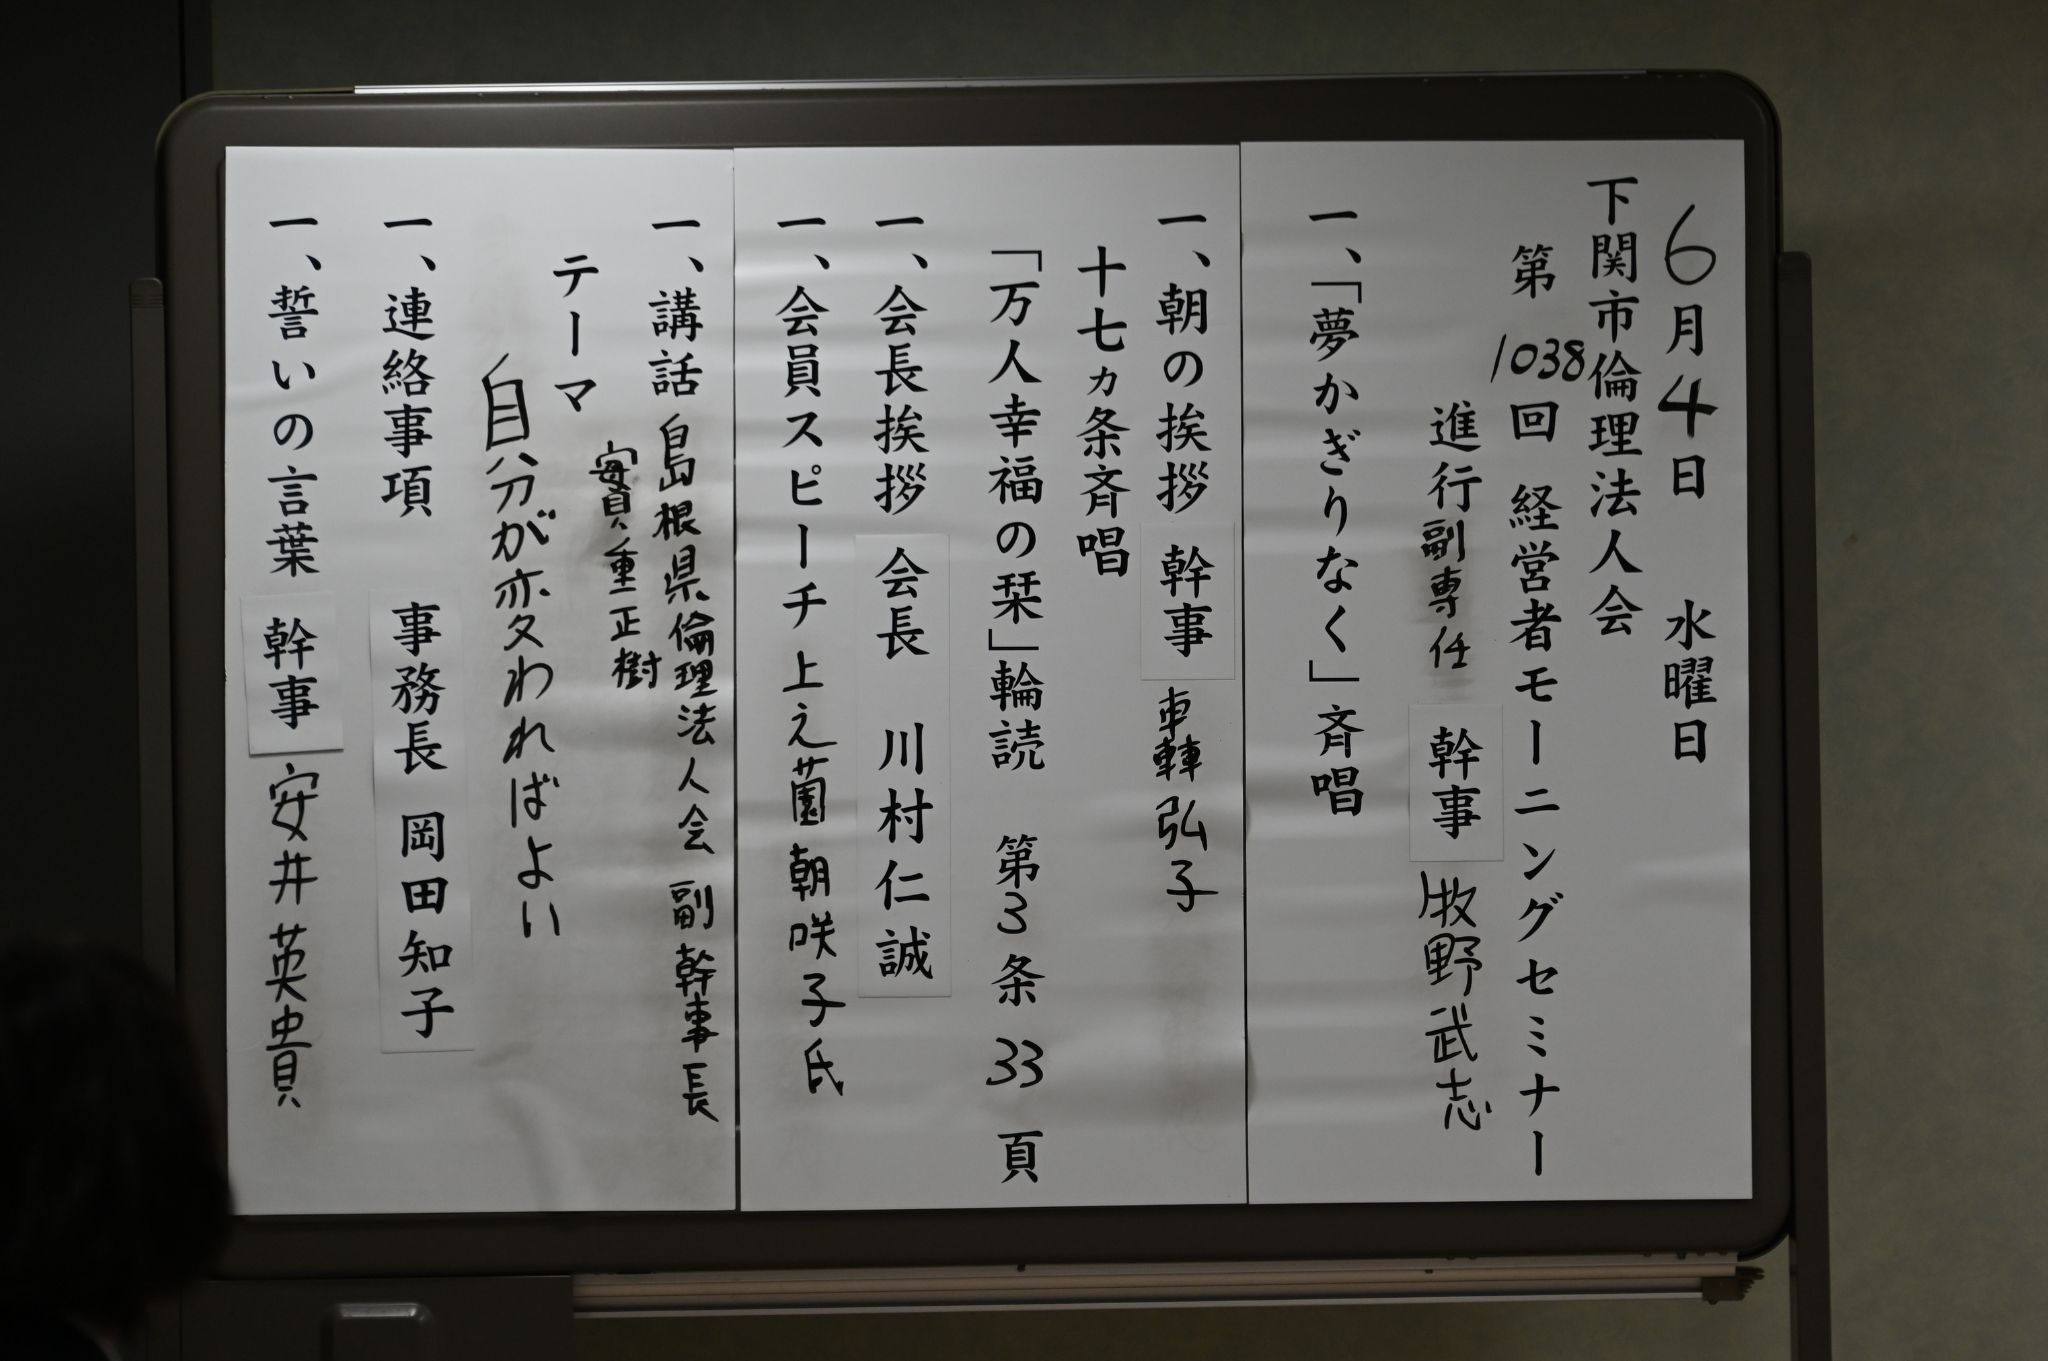 6月4日 水曜日
下関市倫理法人会
第1038回 経営者モーニングセミナー
進行 副専任 幹事 牧野武志
一、「夢かぎりなく」斉唱
一、朝の挨拶 幹事 弘子
十七ヵ条斉唱
「万人幸福の栞」輪読 第3条 33頁
一、会長挨拶 会長 川村仁誠
一、会員スピーチ 上之薗朝咲子氏
一、講話 島根県倫理法人会 副幹事長
重正樹
テーマ
自分が変わればよい
一、連絡事項 事務長 岡田知子
一、誓いの言葉 幹事 安井英貴